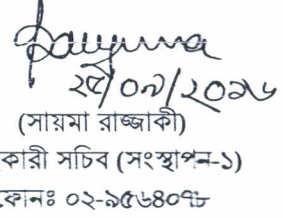 Sayma
২৫/০৭/২০১৬
(সায়মা রাজ্জাকী)
কারী সচিব (সংস্থাপন-১)
ফোনঃ ০২-৯৫৬৪০৭৮